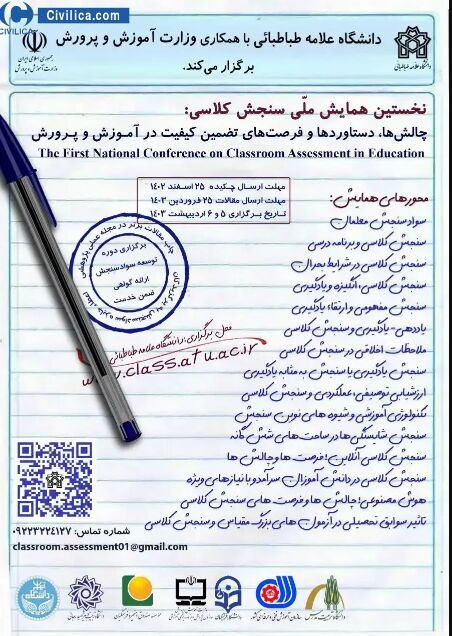 Civilica.com
CIVILICA
دانشگاه علامه طباطبائی با همکاری وزارت آموزش و پرورش
برگزار می‌کند.
جمهوری اسلامی ایران
وزارت آموزش و پرورش
دانشگاه علامه طباطبائی
نخستین همایش ملّی سنجش کلاسی:
چالش‌ها، دستاوردها و فرصت‌های تضمین کیفیت در آموزش و پرورش
The First National Conference on Classroom Assessment in Education
مهلت ارسال چکیده ۲۵ اسفند ۱۴۰۲
مهلت ارسال مقالات ۲۵ فروردین ۱۴۰۳
تاریخ برگزاری ۵ و ۶ اردیبهشت ۱۴۰۳
محورهای همایش:
سواد سنجش معلمان
سنجش کلاسی و برنامه درسی
سنجش کلاسی در شرایط بحران
سنجش کلاسی، انگیزه و یادگیری
سنجش مفهومی و ارتقاء یادگیری
یاددهی - یادگیری و سنجش کلاسی
ملاحظات اخلاقی در سنجش کلاسی
سنجش یادگیری یا سنجش به مثابه یادگیری
ارزشیابی توصیفی، عملکردی و سنجش کلاسی
تکنولوژی آموزشی و شیوه های نوین سنجش
سنجش شایستگی‌ها در ساحت های شش گانه
سنجش کلاسی آنلاین؛ فرصت ها و چالش ها
سنجش کلاسی در دانش آموزان سرآمد و با نیازهای ویژه
هوش مصنوعی؛ چالش ها و فرصت های سنجش کلاسی
تاثیر سوابق تحصیلی در آزمون های بزرگ مقیاس و سنجش کلاسی
چاپ مقالات برتر در مجله علمی پژوهشی
برگزاری دوره
توسعه سواد سنجش
ارائه گواهی
ضمن خدمت
محل برگزاری: دانشگاه علامه طباطبائی
www.class.atu.ac.ir
شماره تماس: ۰۹۲۲۳۲۲۴۱۲۷
classroom.assessment01@gmail.com